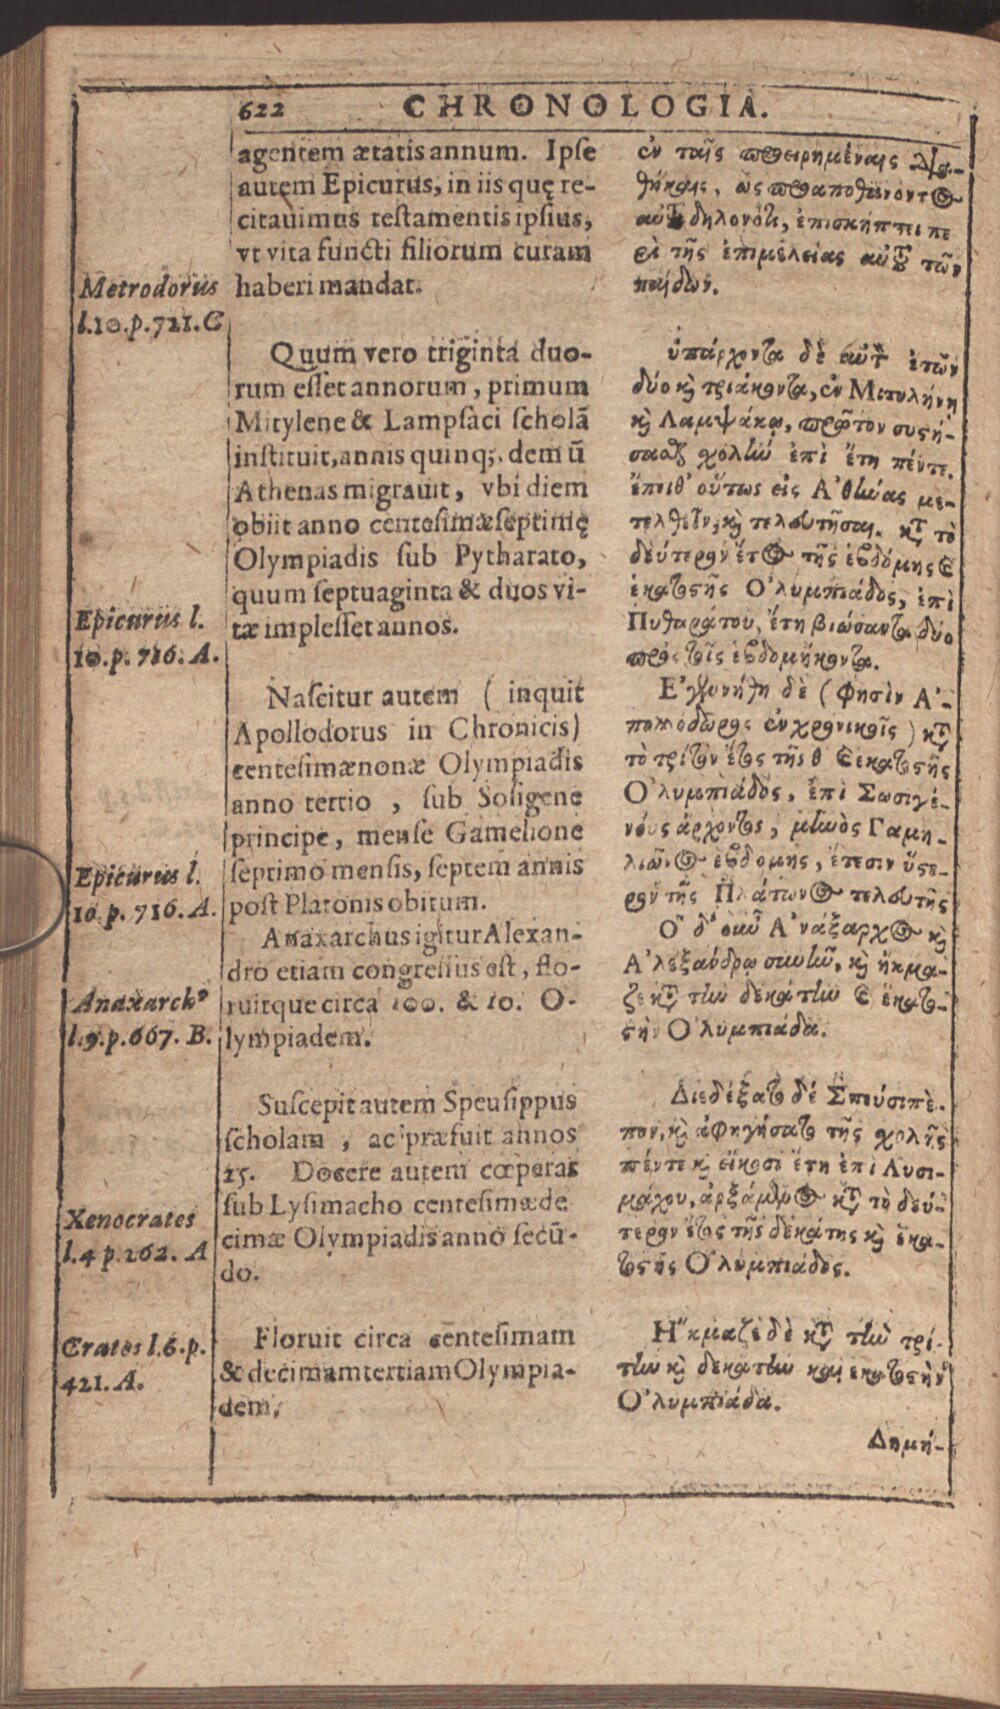 622 CHRONOLOGIA.
Metrodorus
l.10.p.721.C
Epicurus l.
10.p.716.A.
Epicurus l.
10.p.716.A.
Anaxarch⁹
l.9.p.667.B.
Xenocrates
l.4 p.262. A
Crates l.6.p.
421.A.
agentem ætatis annum. Ipſe
autem Epicurus, in iis quę re-
citauimus teſtamentis ipſius,
vt vita functi filiorum curam
haberi mandat.
Quum vero triginta duo-
rum eſſet annorum, primum
Mitylene & Lampſaci ſcholā
inſtituit, annis quinq;. dem ū
Athenas migrauit, vbi diem
obiit anno centeſimæſeptimę
Olympiadis ſub Pytharato,
quum ſeptuaginta & duos vi-
tæ impleſſet annos.
Naſcitur autem ( inquit
Apollodorus in Chronicis)
centeſimænonæ Olympiadis
anno tertio , ſub Soſigene
principe, menſe Gamelione
ſeptimo menſis, ſeptem annis
poſt Platonis obitum.
Anaxarchus igitur Alexan-
dro etiam congreſſus eſt, flo-
ruitque circa 100. & 10. O-
lympiadem.
Suſcepit autem Speuſippus
ſcholam , ac præfuit annos
25. Docere autem cœperat
ſub Lyſimacho centeſimæde
cimæ Olympiadis anno ſecū-
do.
Floruit circa centeſimam
& decimamtertiam Olympia-
dem.
ἐν ταῖς προειρημέναις δια-
θήκαις, ὡς προαποθανόντος
αὐτοῦ δηλονότι, ἐπισκήπτει πε
ρὶ τῆς ἐπιμελείας αὐτοῦ τῶν
παίδων.
ὑπάρχοντα δὲ αὐτὸν ἐτῶν
δύο κὶ τριάκοντα, ἐν Μιτυλήνη
κὶ Λαμψάκῳ, πρῶτον συςή-
σασθαι χολὴν ἐπὶ ἔτη πέντε.
ἔπειθ' οὕτως εἰς Ἀθήνας με-
τελθεῖν, κὶ τελευτῆσαι. κατὰ τὸ
δεύτερον ἔτος τῆς ἑβδόμης κὶ
ἑκατοςῆς Ὀλυμπιάδος, ἐπὶ
Πυθαράτου, ἔτη βιώσαντα δύο
πρὸς τοῖς ἑβδομήκοντα.
Ἐγεννήθη δὲ (φησὶν Ἀ-
πολλόδωρος ἐν χρονικοῖς) κατὰ
τὸ τρίτον ἔτος τῆς θ κὶ ἑκατοςῆς
Ὀλυμπιάδος, ἐπὶ Σωσιγέ-
νους ἄρχοντος, μηνὸς Γαμη-
λιῶνος ἑβδόμης, ἔτεσιν ὕςε-
ρον τῆς Πλάτωνος τελευτῆς
Ὁ δ' οὖν Ἀνάξαρχος κὶ
Ἀλεξάνδρῳ συνῆν, κὶ ἤκμα-
ζε κατὰ τὴν δεκάτην κὶ ἑκατο-
ςὴν Ὀλυμπιάδα.
Διεδέξατο δέ Σπεύσιπ-
πον, κὶ ἀφηγήσατο τῆς χολῆς
πέντε κὶ εἴκοσι ἔτη ἐπὶ Λυσι-
μάχου, ἀρξάμενος κατὰ τὸ δεύ-
τερον ἔτος τῆς δεκάτης κὶ ἑκα-
τοςῆς Ὀλυμπιάδος.
Ἤκμαζε δὲ κατὰ τὴν τρί-
την κὶ δεκάτην καὶ ἑκατοςὴν
Ὀλυμπιάδα.
Δημή-